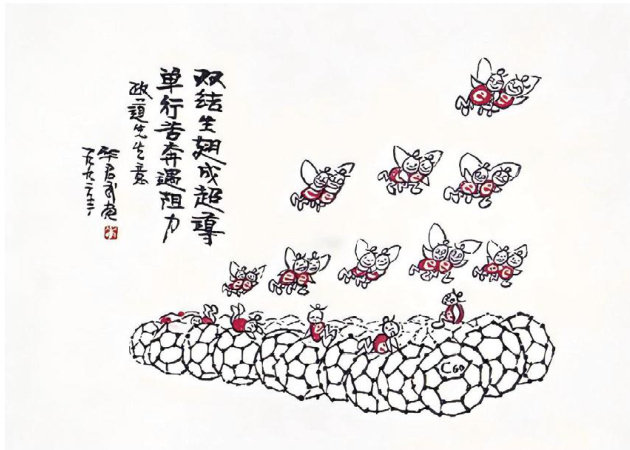 双结生翅成超導
单行苦奔遇阻力
政道先生意
华君武画
一九九二
C60